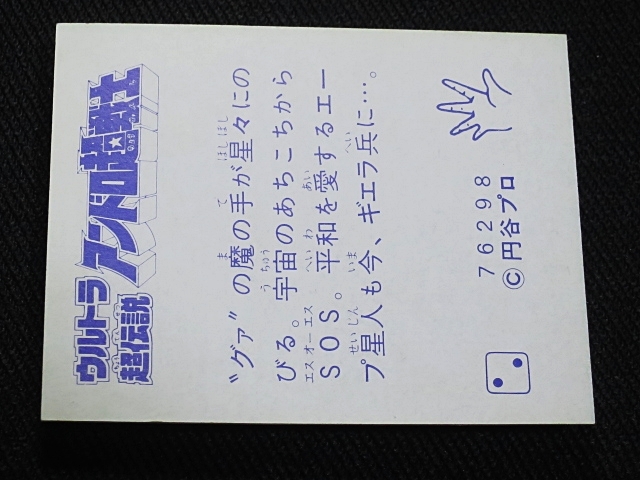 ウルトラ
超伝説
アンドロ超戦士
〝グァ〟の魔の手が星々にの
びる。宇宙のあちこちから
SOS。平和を愛するエー
プ星人も今、ギエラ兵に…。
76298
©円谷プロ